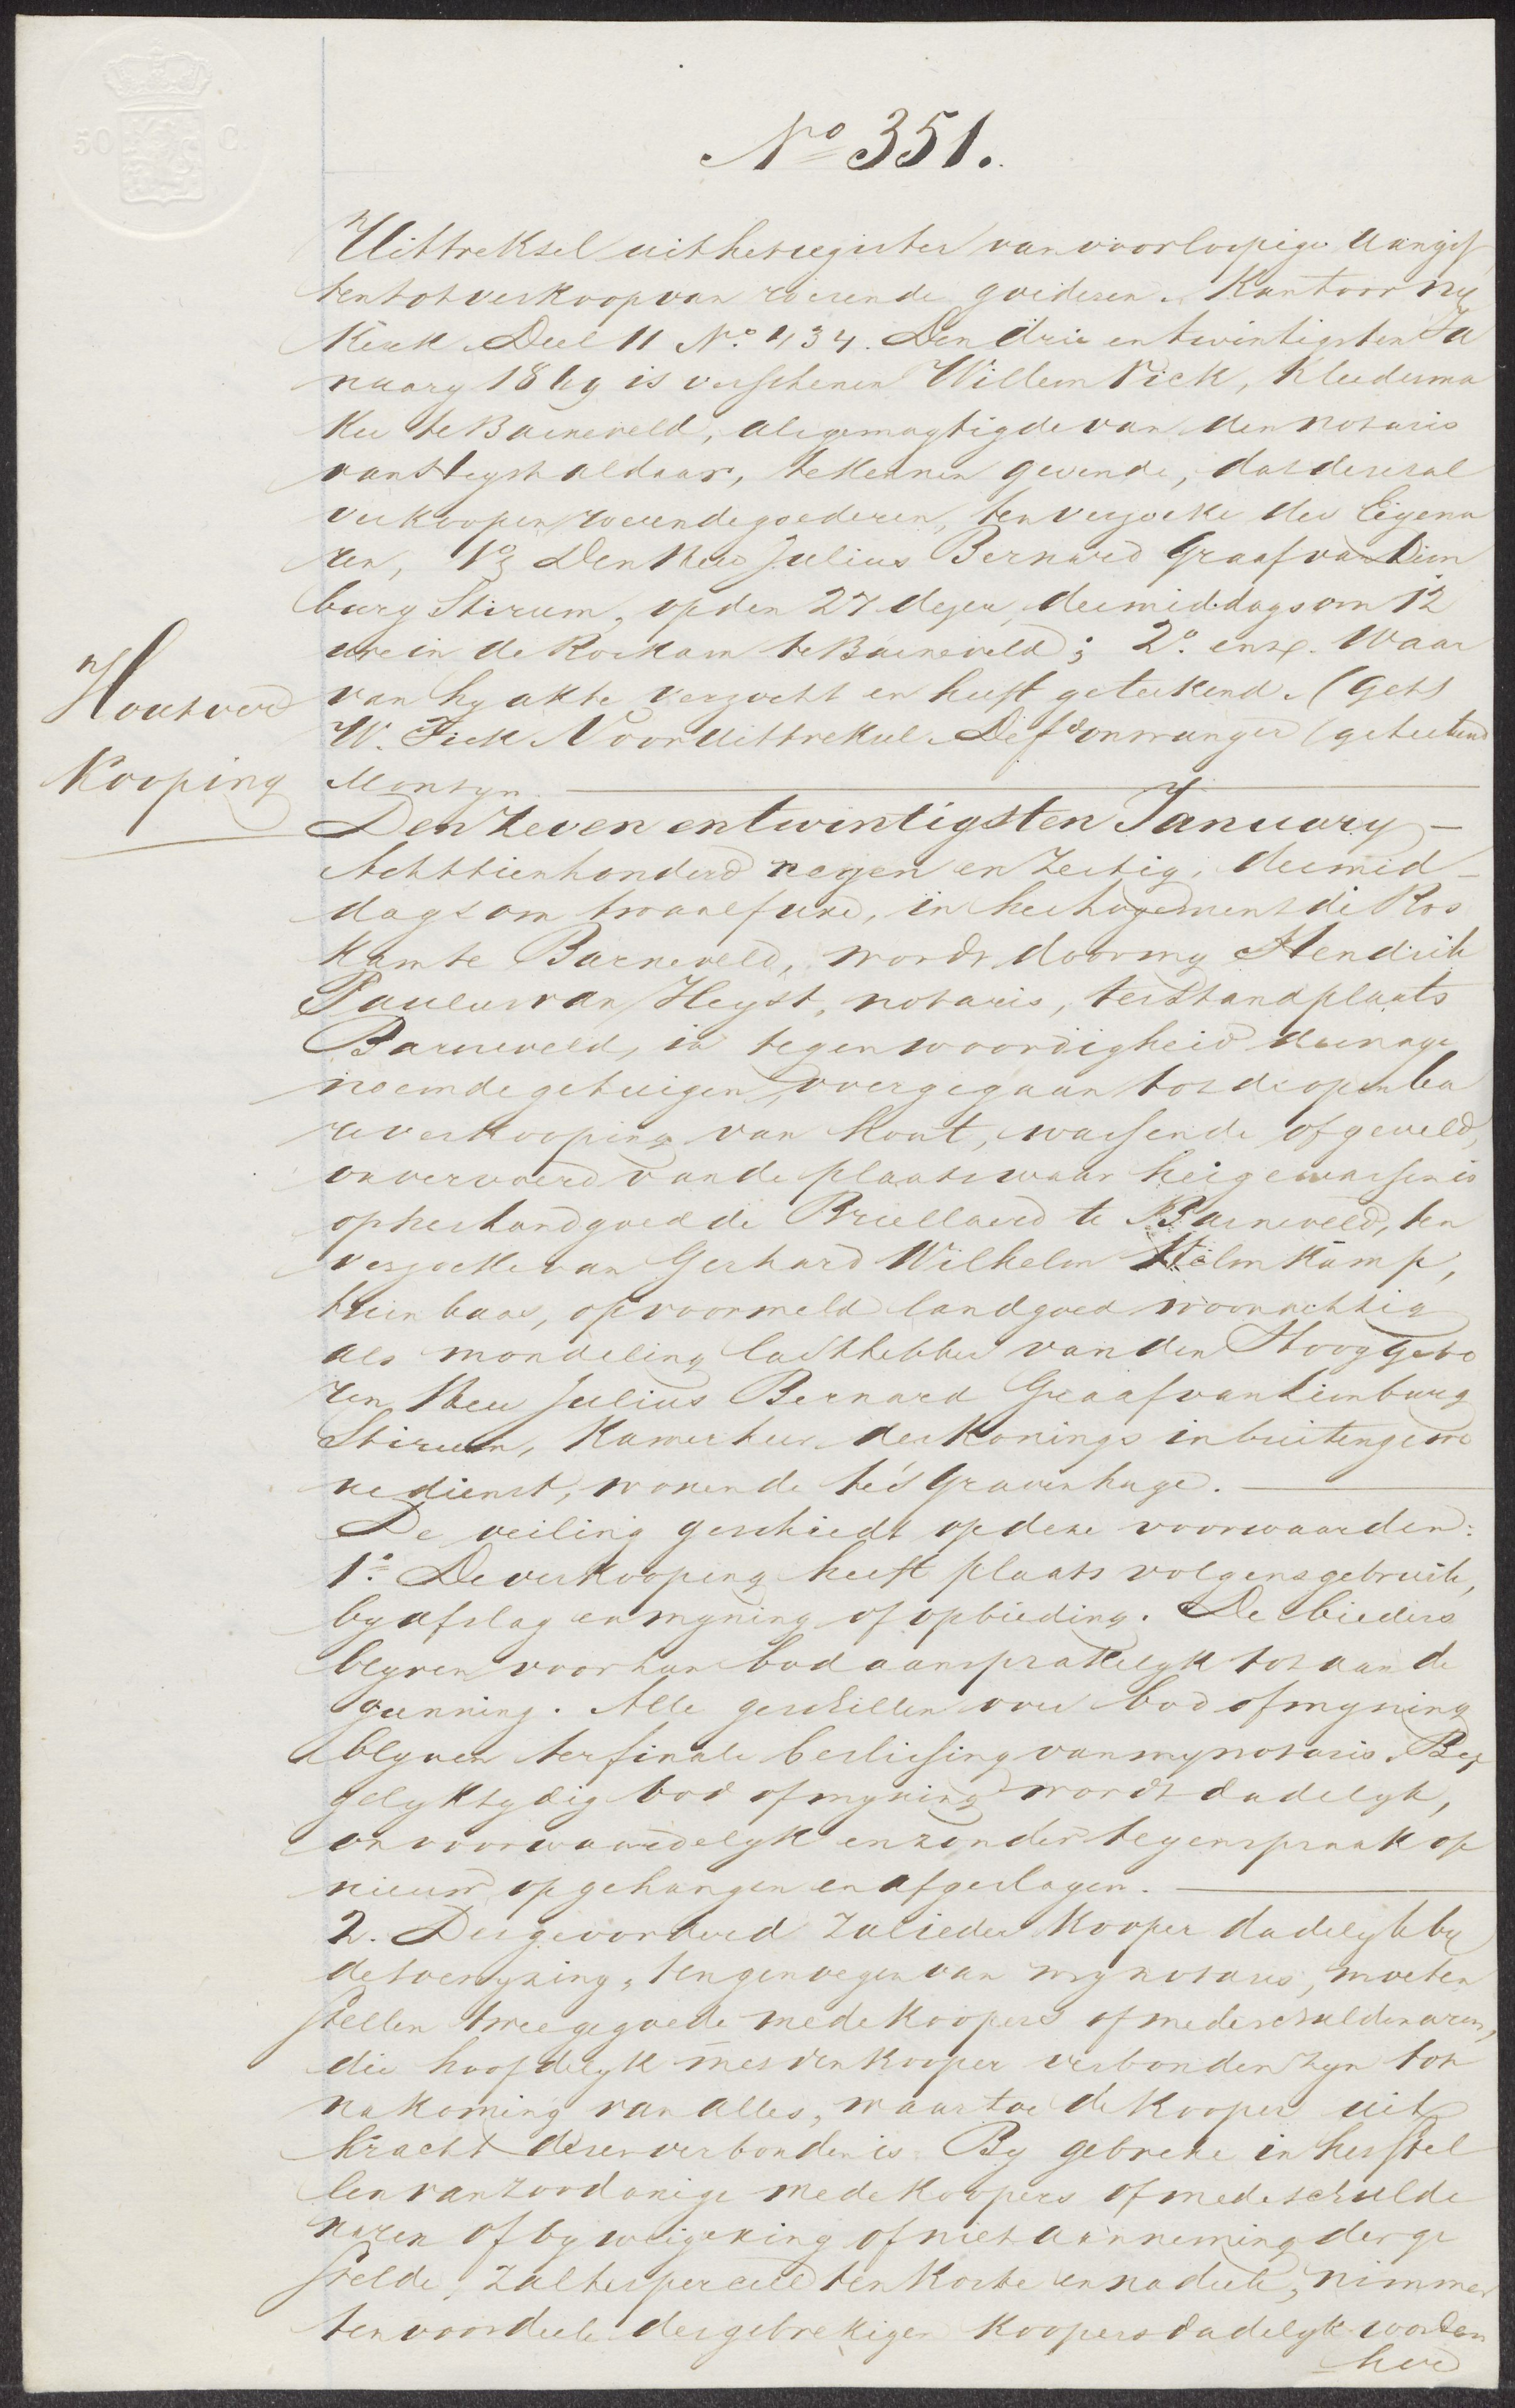 50 C
No 351.
Uittreksel uit het register van voorloopige aangif
ten tot verkoop van roerende goederen. Kantoor Ny
kerk Deel 11 No. 434. Den drie en twintigsten Ja
nuary 1869 is verschenen Willem Fick, Kleederma
ker te Barneveld, als gemagtigde van den notaris
van Heyst aldaar, te kennen gevende, dat deze zal
verkoopen roerende goederen, ten verzoeke der Eigena
ren, 1o Den Heer Julius Bernard Graaf van Lim
burg Stirum, op den 27 dezer, des middags om 12
ure in de Roskam te Barneveld; 2o. enz. Waar
van hy akte verzocht en heeft geteekend. (Get)
W. Fick Voor uittreksel De ontvanger (geteekend
Montyn.
Houtver
kooping
Den Zeven en twintigsten January
Achttienhonderd negen en zestig, des mid
dags om twaalf ure, in het logement de Ros
kam te Barneveld, wordt door my Hendrik
Paulus van Heyst, notaris, ter standplaats
Barneveld, in tegenwoordigheid der nage
noemde getuigen, overgegaan tot de openba
re verkooping van hout, wassende of geveld,
onvervoerd van de plaats waar het gewassen is
op het landgoed de Briellaerd te Barneveld, ten
verzoeke van Gerhard Wilhelm Holmkamp,
tuinbaas, op voormeld landgoed woonachtig
als mondeling lasthebber van den Hooggebo
ren Heer Julius Bernard Graaf van Limburg
Stirum, Kamerheer des Konings in buitengewo
ne dienst, wonende te 's Gravenhage.
De veiling geschiedt op deze voorwaarden:
1o. De verkooping heeft plaats volgens gebruik,
by afslag en myning of opbieding. De bieders
blyven voor hun bod aansprakelyk tot aan de
gunning. Alle geschillen over bod of myning
blyven ter finale beslissing van my notaris. By
gelyktydig bod of myning wordt dadelyk,
onvoorwaardelyk en zonder tegenspraak op
nieuw opgehangen en afgeslagen.
2. Des gevorderd zal ieder kooper dadelyk by
de toewyzing, ten genoegen van my notaris, moeten
stellen twee gegoede medekoopers of medeschuldenaren,
die hoofdelyk met den kooper verbonden zyn tot
nakoming van alles, waartoe de kooper uit
kracht dezer verbonden is. By gebreke in het stel
len van zoodanige medekoopers of medeschulde
naren of by weigering of niet aanneming der ge
stelde, zal het perceel ten koste en nadeele, nimmer
ten voordeele des gebrekigen koopers dadelyk worden
her